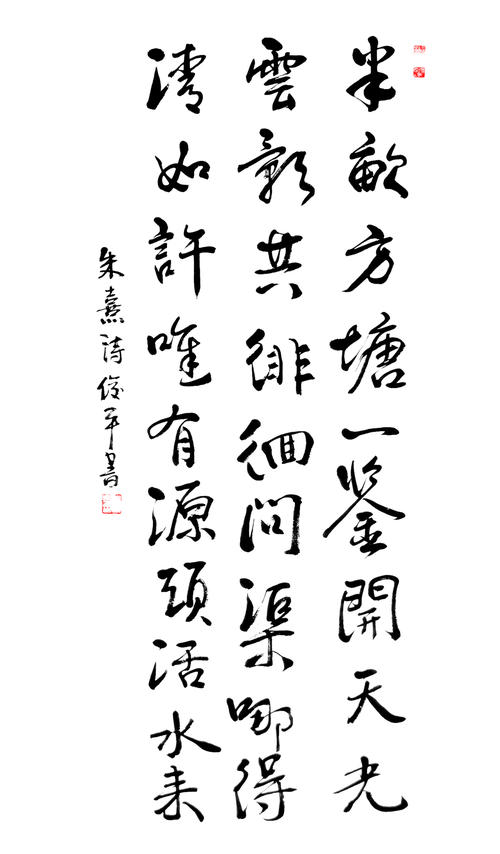 半畝方塘一鑒開天光
雲影共徘徊問渠哪得
清如許唯有源頭活水来
朱熹詩俊平書